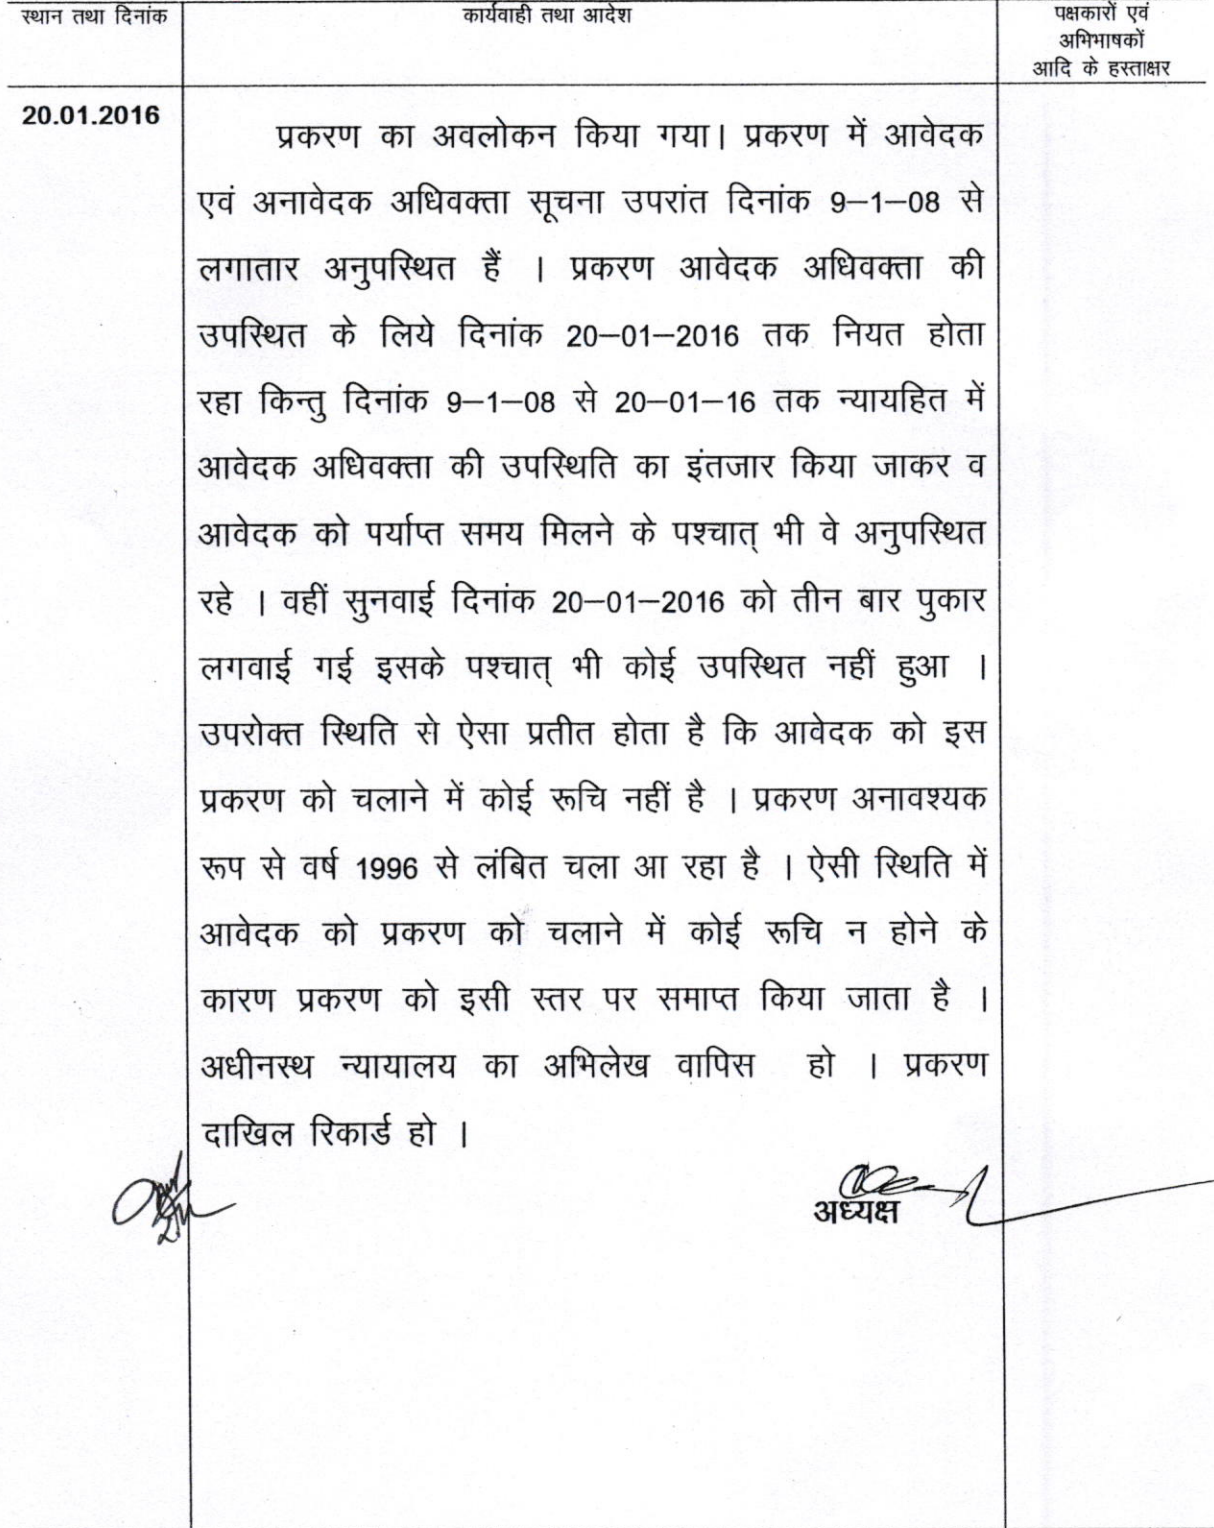 स्थान तथा दिनांक
कार्यवाही तथा आदेश
पक्षकारों एवं
अभिभाषकों
आदि के हस्ताक्षर
20.01.2016
प्रकरण का अवलोकन किया गया। प्रकरण में आवेदक
एवं अनावेदक अधिवक्ता सूचना उपरांत दिनांक 9–1–08 से
लगातार अनुपस्थित हैं । प्रकरण आवेदक अधिवक्ता की
उपस्थित के लिये दिनांक 20–01–2016 तक नियत होता
रहा किन्तु दिनांक 9–1–08 से 20–01–16 तक न्यायहित में
आवेदक अधिवक्ता की उपस्थिति का इंतजार किया जाकर व
आवेदक को पर्याप्त समय मिलने के पश्चात् भी वे अनुपस्थित
रहे । वहीं सुनवाई दिनांक 20–01–2016 को तीन बार पुकार
लगवाई गई इसके पश्चात् भी कोई उपस्थित नहीं हुआ ।
उपरोक्त स्थिति से ऐसा प्रतीत होता है कि आवेदक को इस
प्रकरण को चलाने में कोई रूचि नहीं है । प्रकरण अनावश्यक
रूप से वर्ष 1996 से लंबित चला आ रहा है । ऐसी स्थिति में
आवेदक को प्रकरण को चलाने में कोई रूचि न होने के
कारण प्रकरण को इसी स्तर पर समाप्त किया जाता है ।
अधीनस्थ न्यायालय का अभिलेख वापिस हो । प्रकरण
दाखिल रिकार्ड हो ।
अध्यक्ष